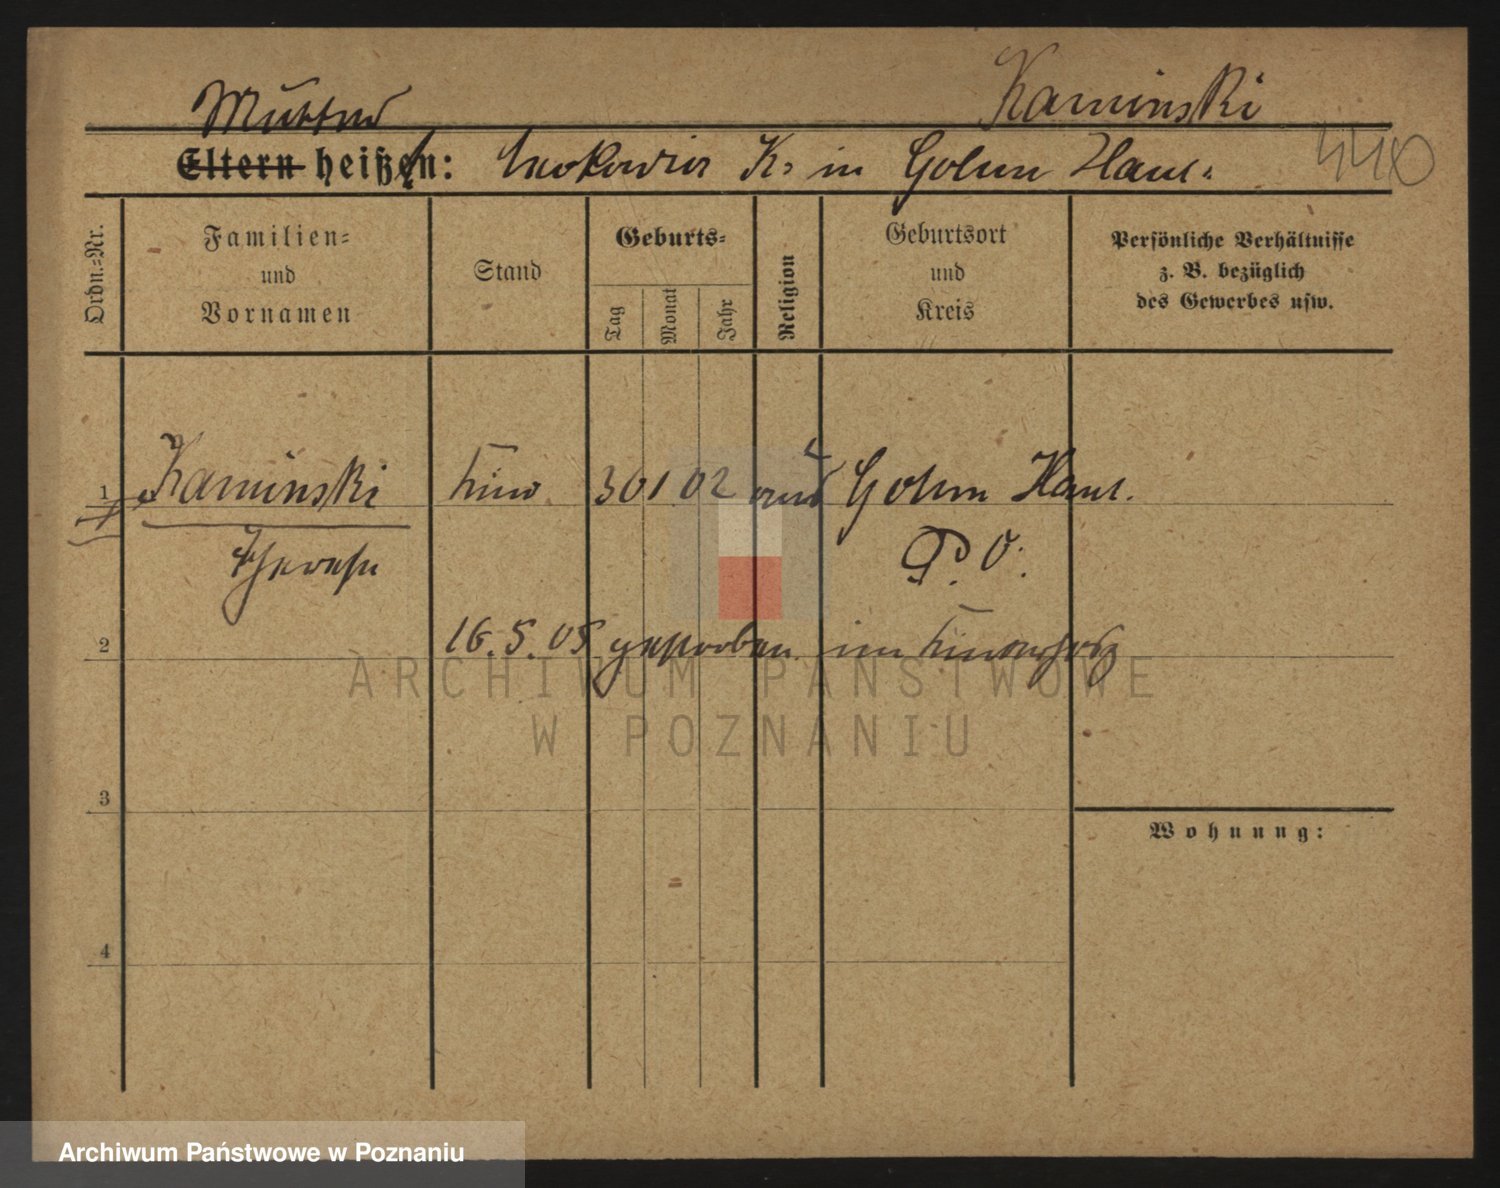 Kaminski
Mutter
Eltern heißen: K. in Golum Haul. 440
Ordn.-Nr.
Familien- und Vornamen
Stand
Geburts-
Tag
Monat
Jahr
Religion
Geburtsort und Kreis
Persönliche Verhältnisse z. B. bezüglich des Gewerbes usw.
1 Kaminski Kind 30 1 02 Haul.
Therese P. O.
2 16.5.05 gestorben im
3
Wohnung:
4
ARCHIWUM PAŃSTWOWE
W POZNANIU
Archiwum Państwowe w Poznaniu